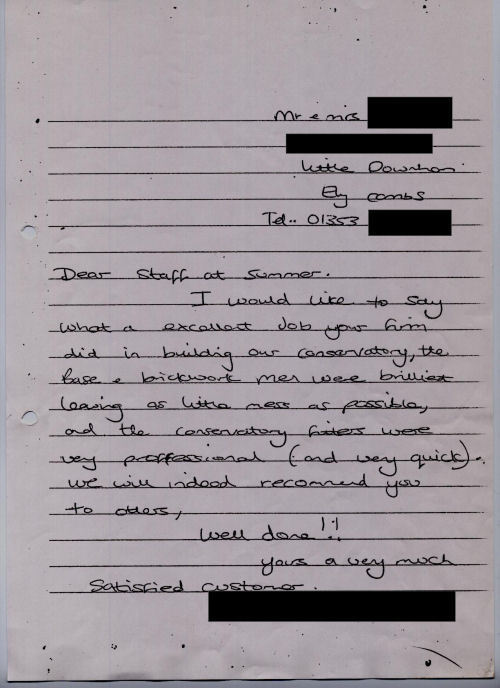 Mr & mrs
Little Downham
Ely cambs
Tel.. 01353
Dear Staff at Summer.
I would like to say
what a excellant Job your firm
did in building our conservatory, the
Base & brickwork men were brilliant
leaving as little mess as possible,
and the conservatory fitters were
very proffessional (and very quick).
we will indeed recommend you
to others,
Well done!!
yours a very much
Satisfied customer.